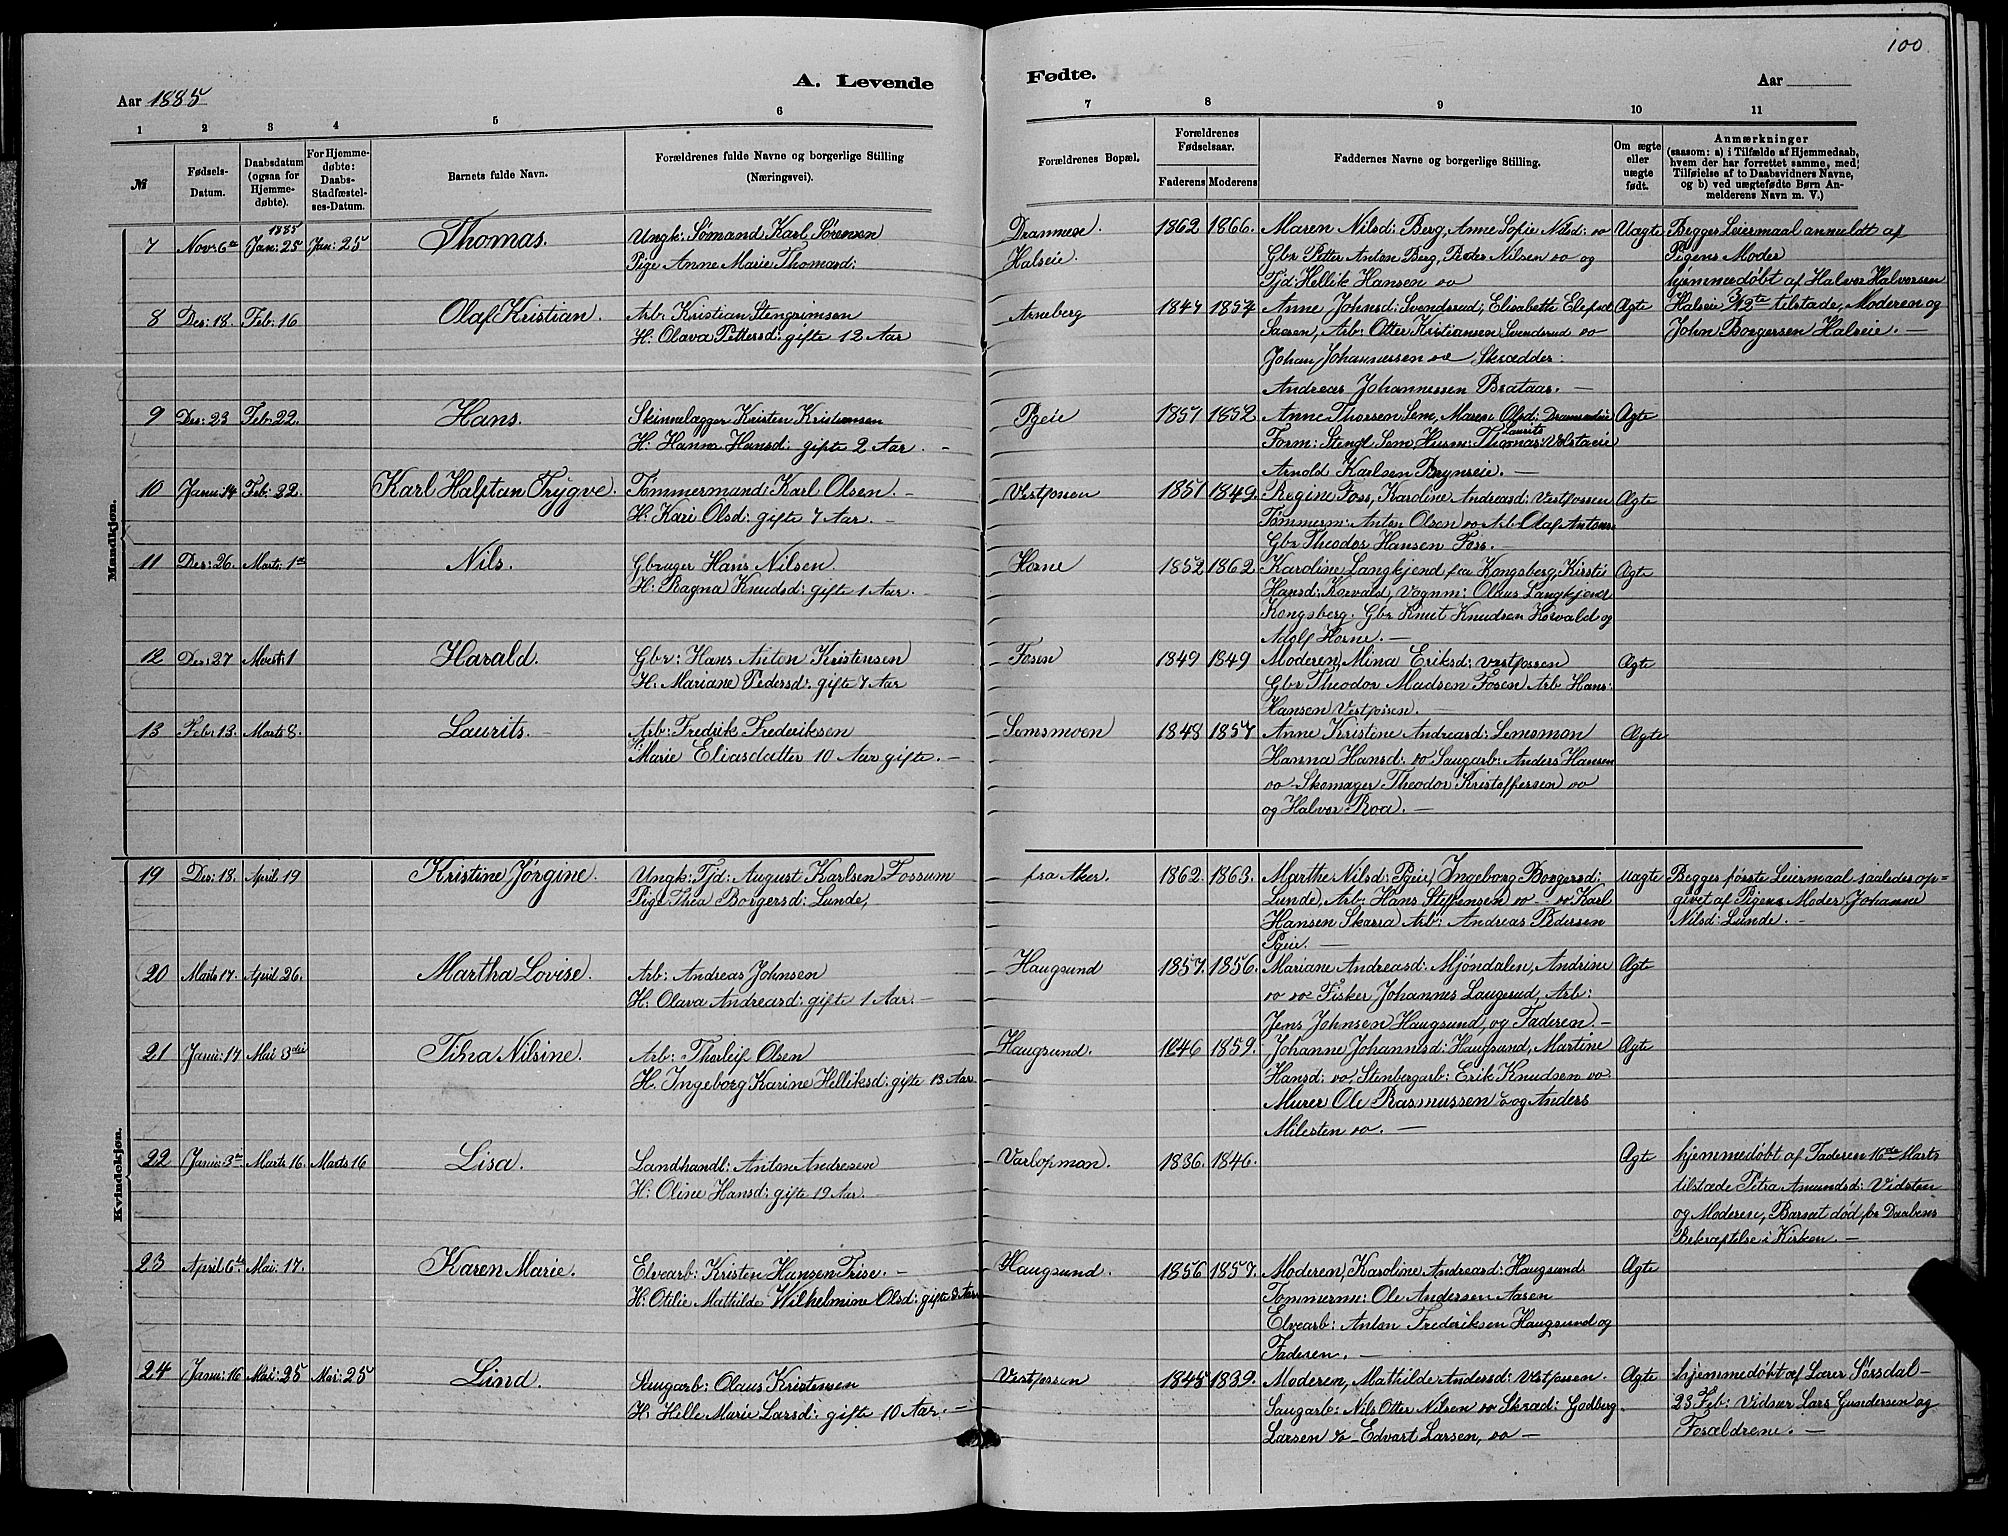 100
Aar 1885
A. Levende
Fødte.
Aar
1 2 3 4 5 6 7 8 9 10 11
№
Fødsels-
Datum.
Daabsdatum
(ogsaa for
Hjemme-
døbte).
For Hjemme-
døbte:
Daabs-
Stadfæstel-
ses-Datum.
Barnets fulde Navn.
Forældrenes fulde Navne og borgerlige Stilling
(Næringsvei).
Forældrenes Bopæl.
Forældrenes
Fødselsaar.
Faderens Moderens
Faddernes Navne og borgerlige Stilling.
Om ægte
eller
uægte
født.
Anmærkninger
(saasom: a) i Tilfælde af Hjemmedaab,
hvem der har forrettet samme, med
Tilføielse af to Daabsvidners Navne,
og b) ved uægtefødte Børn An-
melderens Navn m. V.)
Mandkjøn.
1885
7 Nov: 6te Jan: 25 Jan: 25 Thomas. Ungk: Sømand Karl Sørensen Drammen. 1862 1866. Maren Nilsd: Berg, Anne Sofie Nilsd: oo Uægte Begges Leiermaal anmeldt af
Pige Anne Marie Thomasd: Halseie. Gbr Petter Anton Berg, Peder Nilsen oo og Pigens Moder
Tjd Hellik Hansen oo hjemmedøbt af Halvor Halvorsen
8 Des: 18. Feb: 16 Olaf Kristian. Arb: Kristian Stengrimsen Arneberg 1847 1857 Anne Johnsd: Svendsrud, Elisabeth Ægte Halseie 2te tilstade, Moderen og
H: Olava Pettersd: gifte 12 Aar Arb: Otter Kristiansen Svendsrud oo John Borgersen Halseie. —
Johan Johannessen oo Skrædder:
Andreas Johannessen Brataas. —
9 Des: 23 Feb: 22. Hans. Skinnelægger Kristen Kristensen Pgeie 1857 1852. Anne Thorsen Sem, Maren Olsd: Ægte
H: Hanna Hansd: gifte 2 Aar. — Form: Stengl Sem, Husm: Thomas Laurits
Arnold Karlsen Brynseie. —
10 Janu: 14 Feb: 22. Karl Halfdan Trygve. Tømmermand: Karl Olsen. — Vestfossen 1851 1849. Regine Foss, Karoline Andreasd: Vestfossen Ægte
H: Kari Olsd: gifte 7 Aar. — Tømmerm: Anton Olsen oo Arb Olaf Antons:
Gbr Theodor Hansen Foss. —
11 Des: 26. Marts: 1ste Nils. Gbruger Hans Nilsen Horne 1852 1862. Karoline Langkjend fra Kongsberg, Kirsti Ægte
H: Ragna Knudsd: gifte 1 Aar. — Hansd: Korvald, Vognm: Olaus Langkjend
Kongsberg. Gbr Knut Knudsen Korvald og
Adolf Horne. —
12 Des: 27 Marts: 1 Harald. Gbr: Hans Anton Kristensen Fosen 1849 1849 Moderen, Mina Eriksd: Vestfossen Ægte
H: Mariane Pedersd: gifte 7 Aar Gbr Theodor Madsen Fosen, Arb Hans
Hansen Vestfossen. —
13 Feb: 13. Marts 8. Laurits. — Arb: Fredrik Frederiksen Semsmoen 1848 1857 Anne Kristene Andreasd: Semsmon Ægte
H: Marie Eliasdatter 10 Aar gifte. — Hanna Hansd: oo Saugarb: Anders Hansen
oo Skomager Theodor Kristoffersen oo
og Halvor Roa. —
Kvindekjøn.
19 Des: 18. April 19 Kristine Jørgine. Ungk: Tjd: August Karlsen Fossum fra Aker. 1862. 1863. Marthe Nilsd: Pgeie, Ingeborg Borgersd: uægte Begges første Leiermaal saaledes op-
Pige Thea Borgersd: Lunde, Lunde, Arb: Hans Steffensen oo — oo Karl givet af Pigens Moder, Johanne
Hansen Skarra Arb: Andreas Pedersen Nilsd: Lunde. —
Pgeie. —
20 Marts 17. April 26. Martha Lovise. Arb: Andreas Johnsen Haugsund 1857. 1856. Mariane Andreasd: Mjøndalen, Andrine Ægte
H: Olava Andreasd: gifte 1 Aar. — oo oo Fisker Johannes Laugerud, Arb:
Jens Johnsen Haugsund, og Faderen. —
21 Janu: 17 Mai 3die Tina Nilsine. Arb: Thorleif Olsen Haugsund. 1846 1859. Johanne Johannesd: Haugsund, Martine Ægte
H. Ingeborg Karine Helliksd: gifte 13 Aar Hansd: oo, Stenbergarb: Erik Knudsen oo
Murer Ole Rasmussen oo og Anders
Milesten oo. —
22 Janu: 3die Marts 16. Marts 16 Lisa. Landhandl: Anton Andresen Varlopmon. 1836. 1846. Ægte hjemmedøbt af Faderen 16de Marts
H: Oline Hansd: gifte 19 Aar. — tilstæde Petra Amundsd: Vidsten
og Moderen, Barnet død før Daabens
Bekræftelse i Kirken. —
23 April 6te Mai: 17. Karen Marie. Elvearb: Kristen Hansen Trise. — Haugsund. 1856 1857. Moderen, Karoline Andreasd: Haugsund Ægte
H: Otilie Mathilde Wilhelmine Olsd: gifte 8 Aar Tømmerm: Ole Andersen Aasen
Elvearb: Anton Frederiksen Haugsund og
Faderen. —
24 Janu: 16 Mai: 25 Mai: 25 Lind. Saugarb: Olaus Kristensen Vestfossen 1845 1839. Moderen, Mathilde Andersd: Vestfossen. Ægte hjemmedøbt af Lærer Sørsdal —
H: Helle Marie Larsd: gifte 10 Aar. — Saugarb: Nils Otter Nilsen oo Skræd: Godberg 23 Feb: Vidner Lars Gundersen og
Larsen oo — Edvart Larsen, oo — Forældrene. —